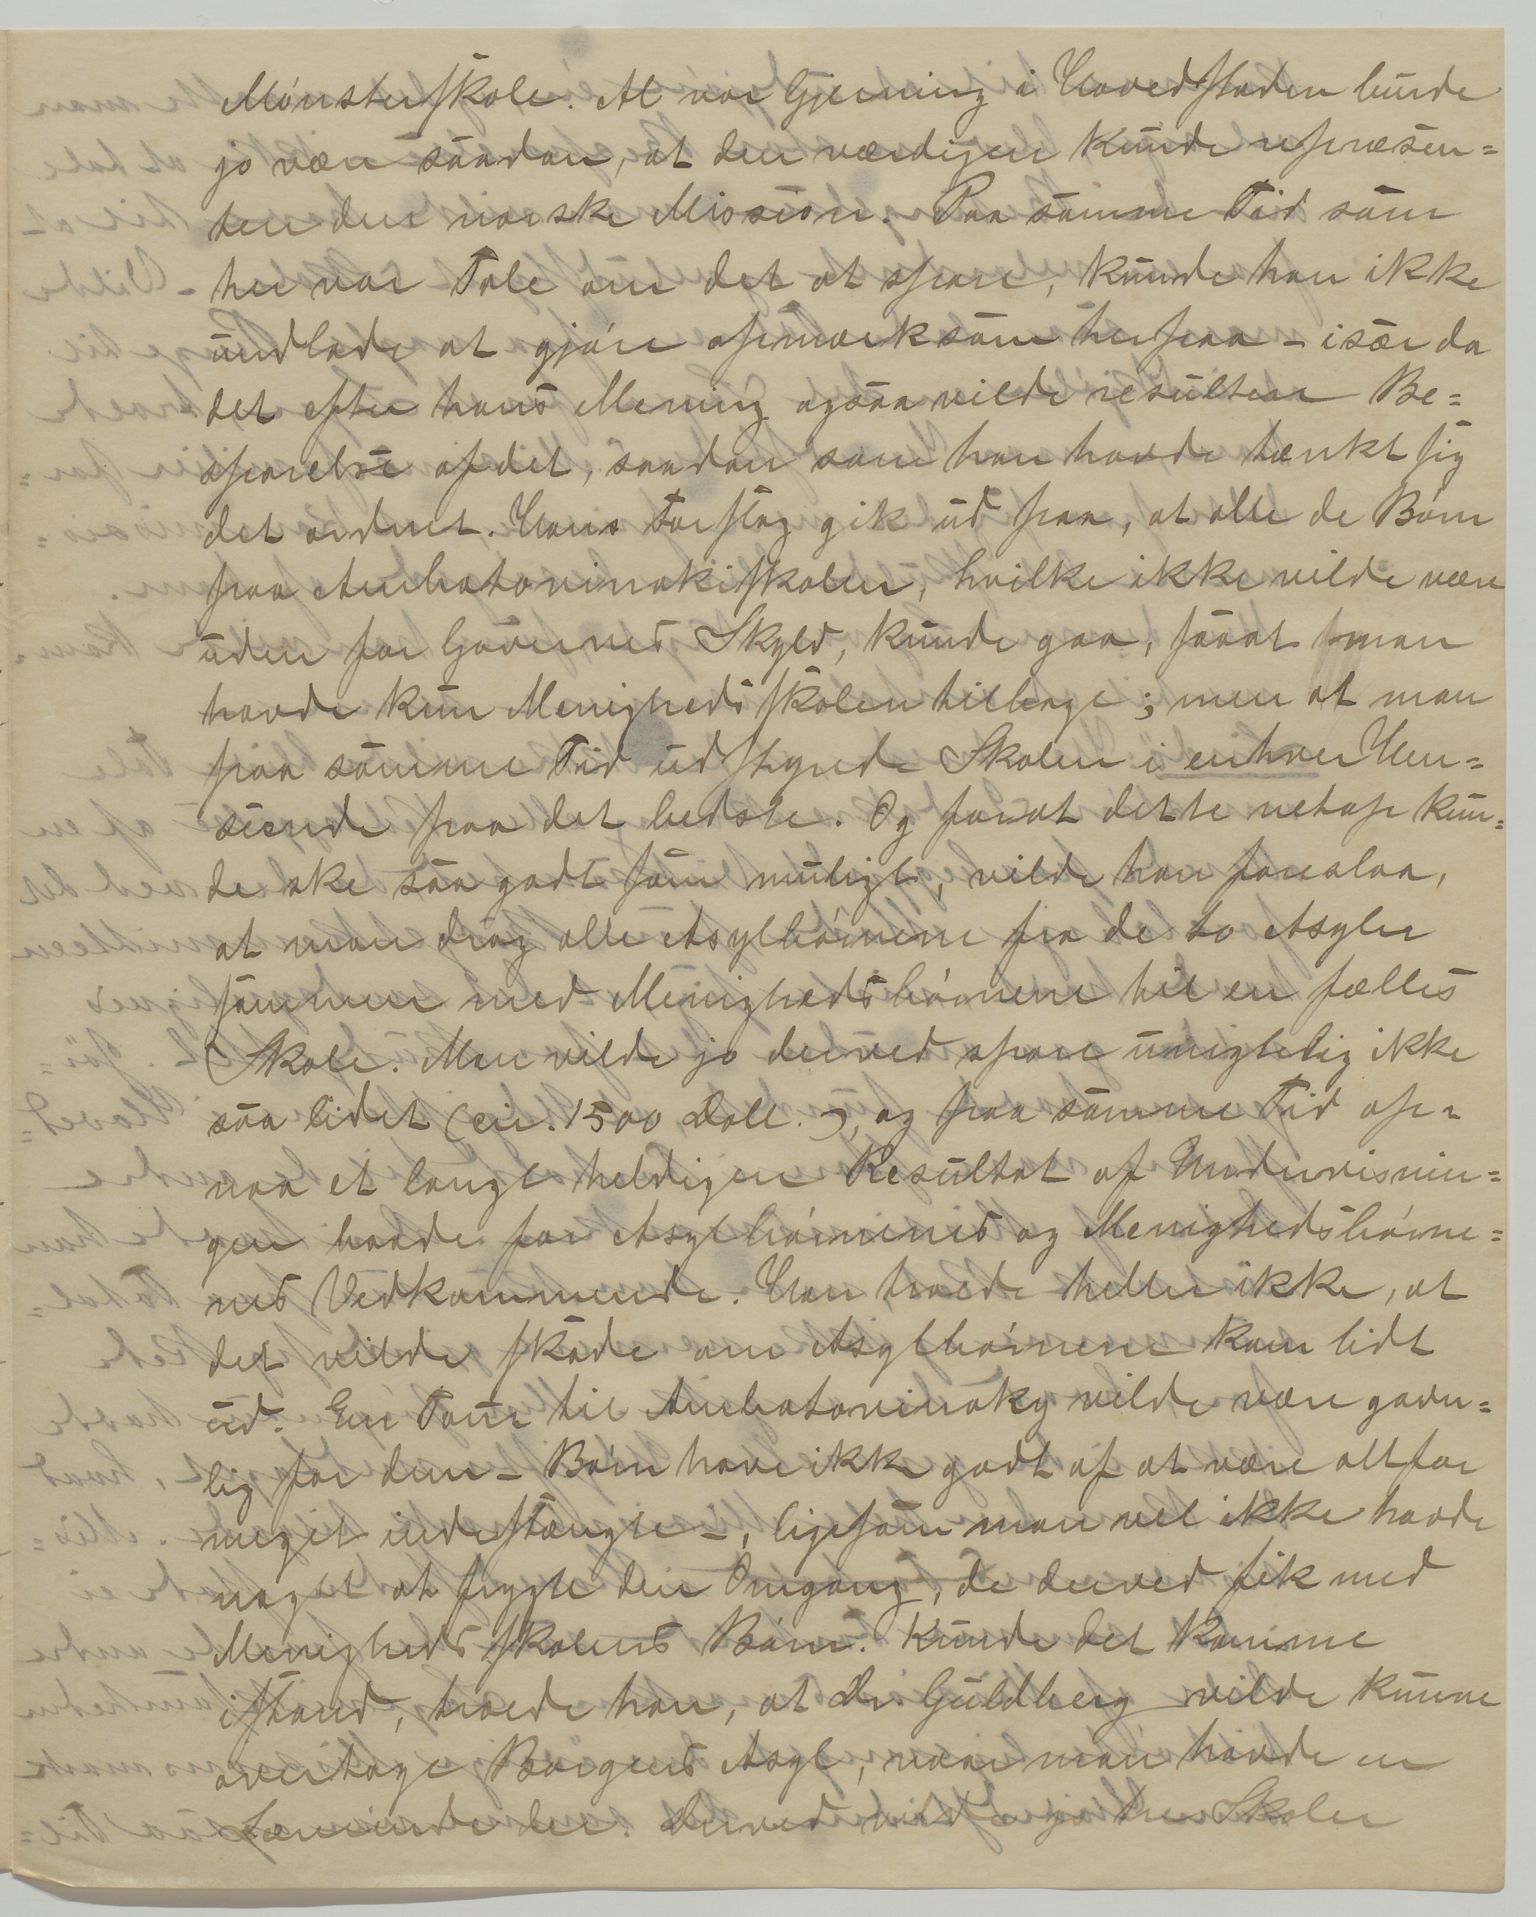 Mønsterskole. Al vor Gjerning i Hovedstaden burde
jo være saadan, at den værdigen kunde repræsen=
tere den norske Mission. Paa samme Tid som
her var Tale om det at spare, kunde han ikke
undlade at gjøre opmærksom herpaa – især da
det efter hans Mening ogsaa vilde resultere Be=
sparelse af det, saadan som han havde tænkt sig
det ordnet. Hans Forslag gik ud paa, at alle de Børn
paa Ambatovinakiskolen, hvilke ikke vilde være
uden for Gavernes Skyld, kunde gaa, saaat man
havde kun Menighedsskolen tilbage; men at man
paa samme Tid udstyrede Skolen i enhver Hen=
seende paa det bedste. Og forat dette netop kun=
de ske saa godt som muligt, vilde han foreslaa,
at man drog alle Asylbørnene fra de to Asyler
sammen med Menighedsbørnene til en fælles
Skole. Men vilde jo derved spare unigtelig ikke
saa lidet (ci. 1500 Doll.), og paa samme Tid op=
naa et langt heldigere Resultat af Undervisnin=
gen baade for Asylbørnenes og Menighedsbørne=
nes Vedkommende. Han troede heller ikke, at
det vilde skade om Asylbørnene kom lidt
ud. En Tour til Ambatovinaky vilde være gavn=
lig for dem – Børn have ikke godt af at være altfor
meget indestængte –, ligesom man vel ikke havde
noget at frygte den Omgang, de derved fik med
Menighedsskolens Børn. Kunde det komme
istand, troede han, at Dr Guldberg vilde kunne
overtage Borgens Asyl, naar man havde en
Lærerinde der. Derved vilde jo tre Skoler